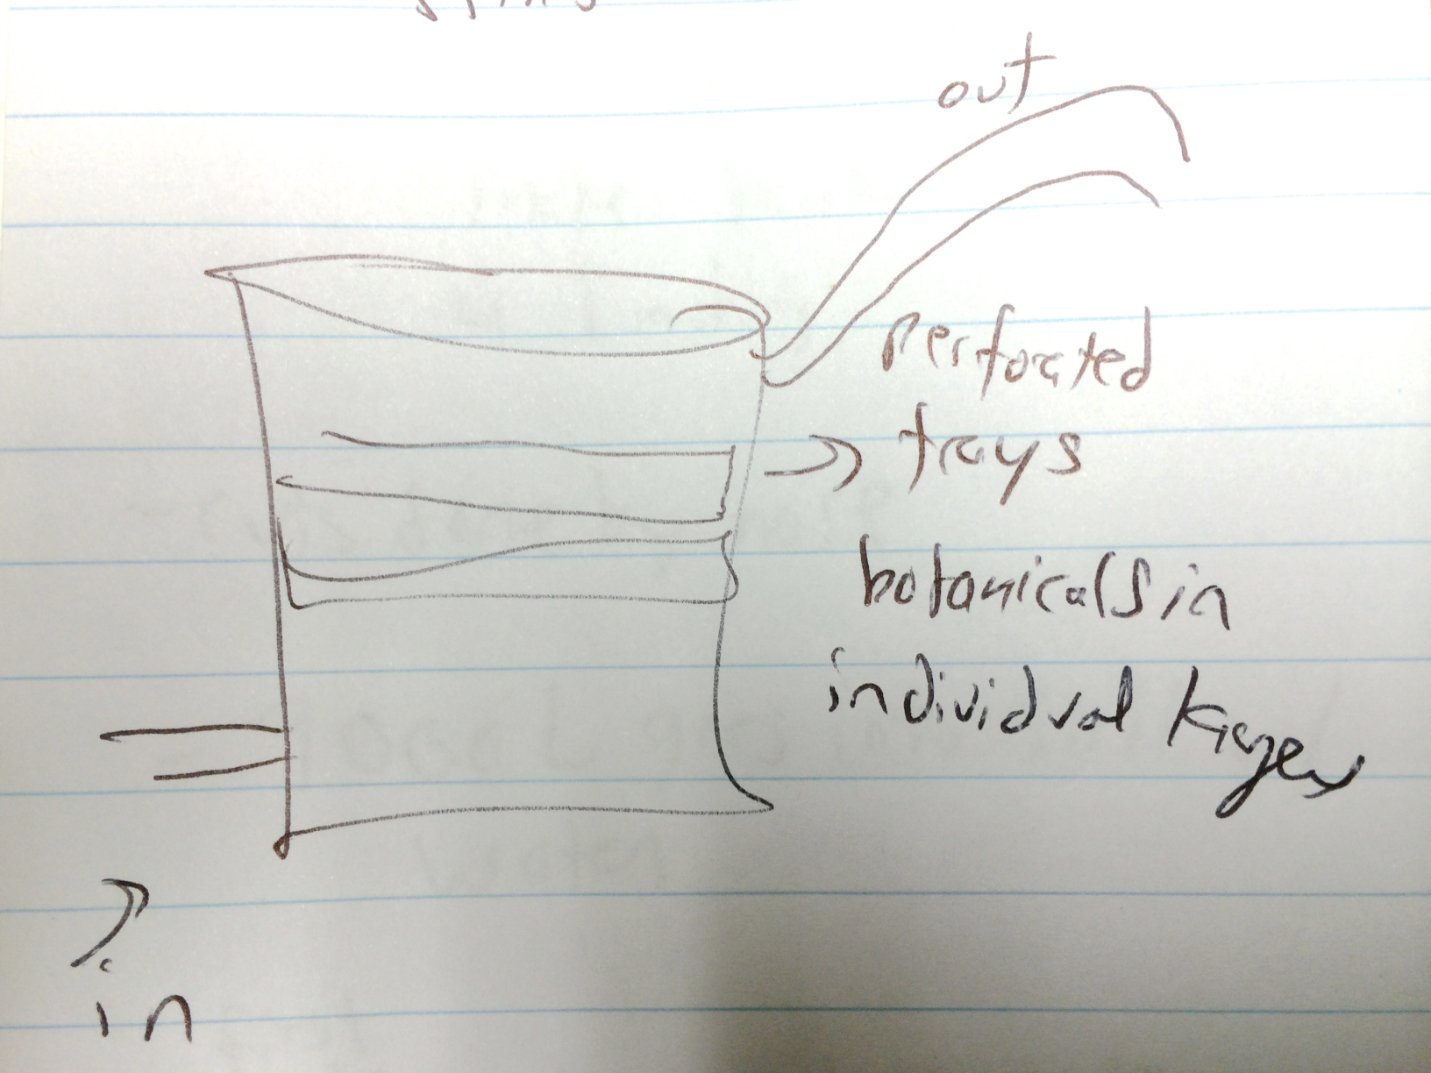 out
perforated
trays
botanicals in
individual
in